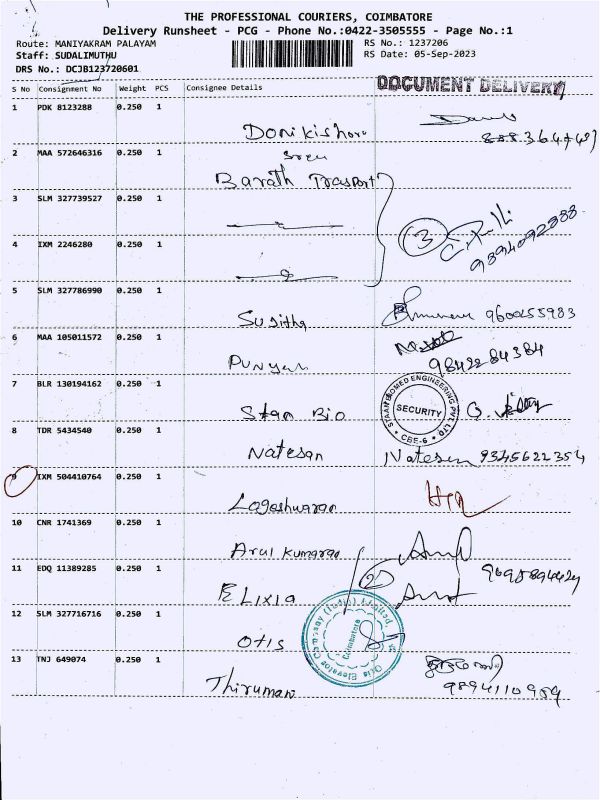 THE PROFESSIONAL COURIERS, COIMBATORE
Delivery Runsheet - PCG - Phone No.:0422-3505555 - Page No.:1
Route: MANIYAKRAM PALAYAM
RS No.: 1237206
Staff: SUDALIMUTHU
RS Date: 05-Sep-2023
DRS No.: DCJB123720601
DOCUMENT DELIVERY
S No Consignment No Weight PCS Consignee Details
1 PDK 8123288 0.250 1
Donikishore
2 MAA 572646316 0.250 1
Sree
Barath Trasport
3 SLM 327739527 0.250 1
3
9894092888
4 IXM 2246280 0.250 1
5 SLM 327786990 0.250 1
Sugitha 9600455983
6 MAA 105011572 0.250 1
9842284384
7 BLR 130194162 0.250 1
Stan Bio
STAAN BIOMED ENGINEERING PVT LTD
SECURITY
CBE-6
8 TDR 5434540 0.250 1
Natesan Natesan 9345622354
9 IXM 504410764 0.250 1
Logeshwaran
10 CNR 1741369 0.250 1
Arul Kumaran
11 EDQ 11389285 0.250 1
2
ELixia
12 SLM 327716716 0.250 1
Otis
Otis Elevator Company (India) Limited
Coimbatore
13 TNJ 649074 0.250 1
Thiruman
9894110989